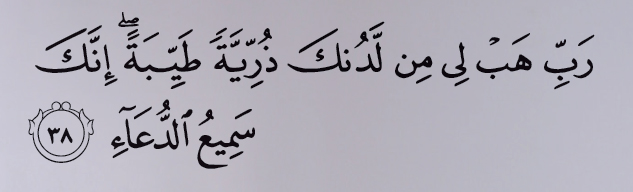 رَبِّ هَبۡ لِي مِن لَّدُنكَ ذُرِّيَّةٗ طَيِّبَةًۖ إِنَّكَ
سَمِيعُ ٱلدُّعَآءِ ٣٨